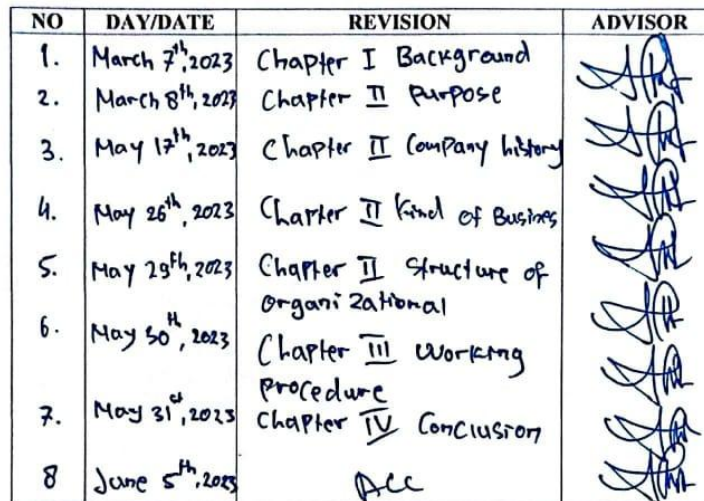 NO DAY/DATE REVISION ADVISOR
1. March 7th, 2023 Chapter I Background
2. March 8th, 2023 Chapter II Purpose
3. May 17th, 2023 Chapter II Company history
4. May 26th, 2023 Chapter II Kind of Busines
5. May 29th, 2023 Chapter II Structure of
organizational
6. May 30th, 2023 Chapter III Working
Procedure
7. May 31st, 2023 Chapter IV Conclusion
8 June 5th, 2023 Acc